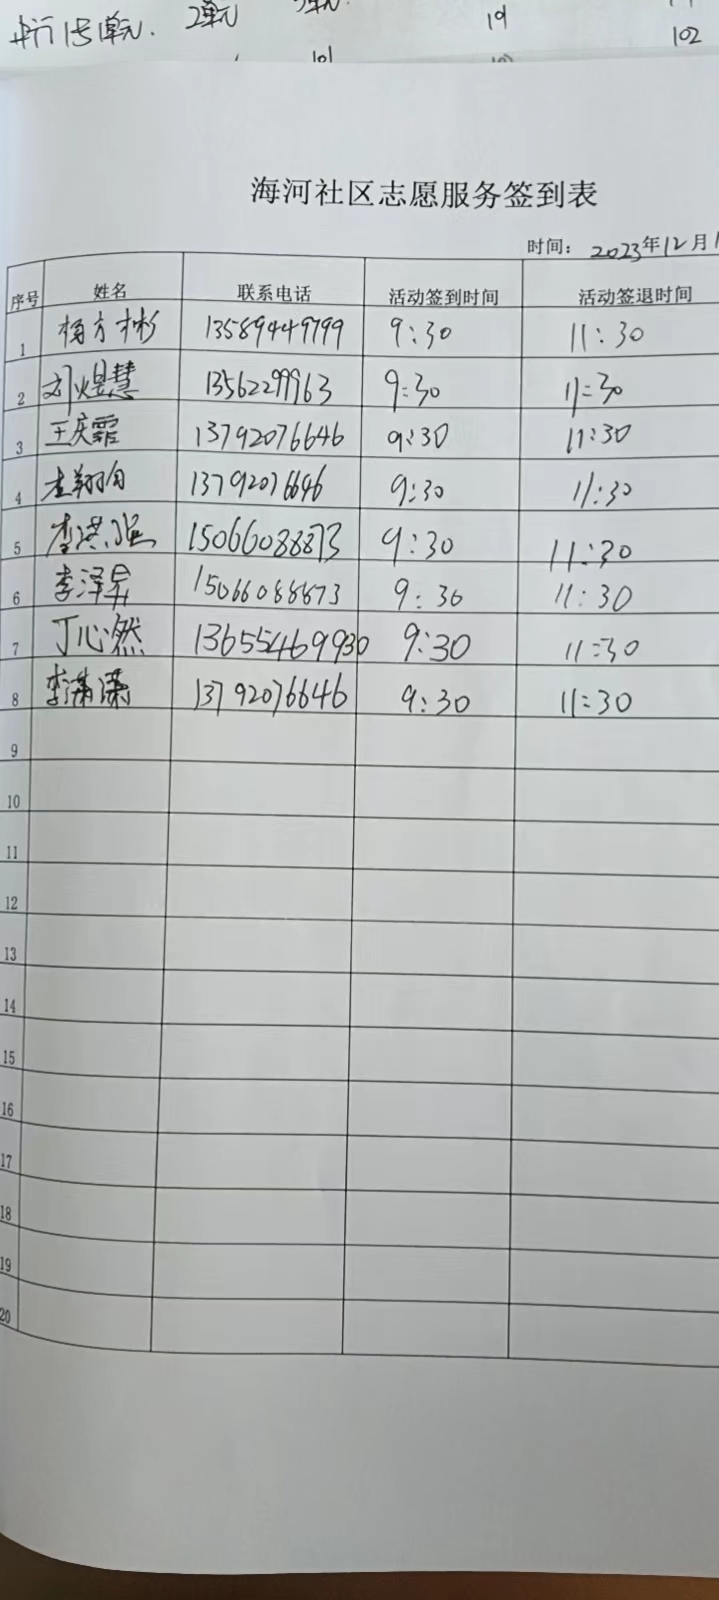 1单元. 2单元
19
102
101
海河社区志愿服务签到表
时间: 2023年12月1
序号 姓名 联系电话 活动签到时间 活动签退时间
1 杨方彬 13589449799 9:30 11:30
2 刘煜慧 13562299963 9:30 11:30
3 王庆霏 13792076646 9:30 11:30
4 13792076646 9:30 11:30
5 李洪强 15066088873 9:30 11:30
6 李泽昇 15066088873 9:30 11:30
7 丁心然 13655469930 9:30 11:30
8 李潇潇 13792076646 9:30 11:30
9
10
11
12
13
14
15
16
17
18
19
20